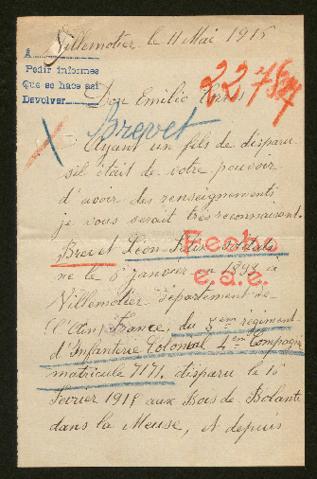 Villemotier le 11 Mai 1915
A
Pedir informes
Que se hace así
Devolver
Don Emilio
Brevet
Ayant un fils de disparu
s'il était de votre pouvoir
d'avoir des renseignements
je vous serait très reconnaisant.
Brevet Léon Félix soldat
né le 6 janvier 1894 a
Villemotier département de
l'Ain France, du 5eme regiment
d'Infanterie Colonial 4em Compagnie
matricule 7171. disparu le
février 1915 aux Bois de Bolante
dans la Meuse, et depuis